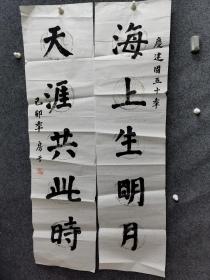 慶建國五十年
海上生明月
天涯共此時
己卯年